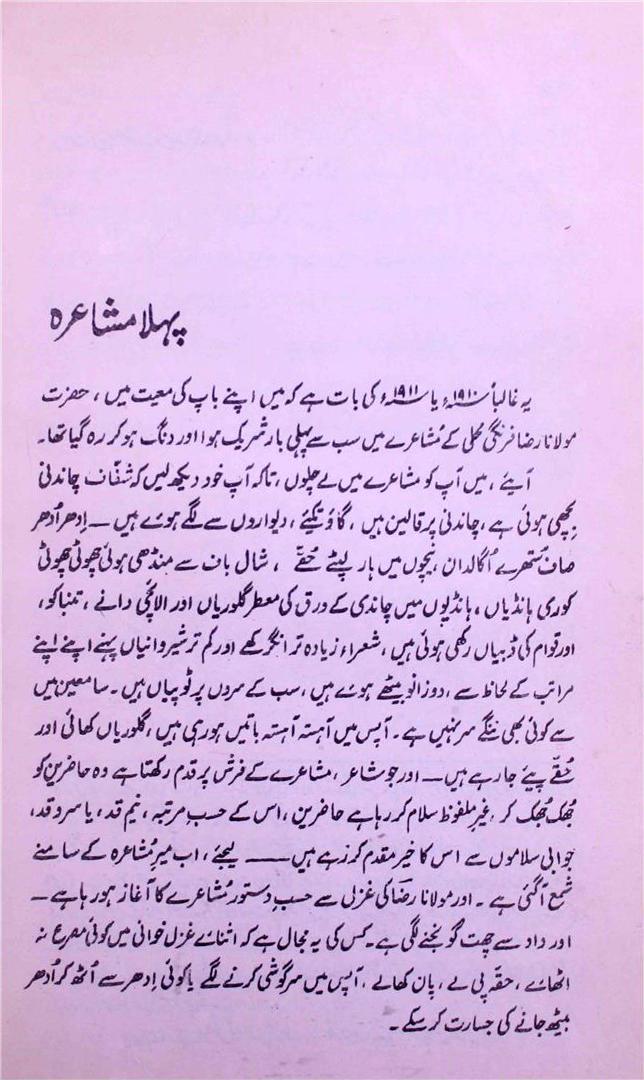 پہلا مشاعرہ
یہ غالباً ۱۹۱۰ء یا ۱۹۱۱ء کی بات ہے کہ میں اپنے باپ کی معیت میں، حضرت
مولانا رضا فرنگی محلی کے مُشاعرے میں سب سے پہلی بار شریک ہوا اور دنگ ہو کر رہ گیا تھا۔
آیئے، میں آپ کو مشاعرے میں لے چلوں، تاکہ آپ خود دیکھ لیں کہ شفّاف چاندنی
بچھی ہوئی ہے، چاندنی پر قالین ہیں، گاؤ تکیئے، دیواروں سے لگے ہوئے ہیں — اِدھر اُدھر
صاف سُتھرے اُگالدان، نیچوں میں ہار لپٹے حُقّے، شال باف سے منڈھی ہوئی چھوٹی چھوٹی
کوری ہانڈیاں، ہانڈیوں میں چاندی کے ورق کی معطر گلوریاں اور الائچی دانے، تمباکو،
اور قوام کی ڈبیاں رکھی ہوئی ہیں، شعراء زیادہ تر انگرکھے اور کم تر شیروانیاں پہنے اپنے اپنے
مراتب کے لحاظ سے، دوزانو بیٹھے ہوئے ہیں، سب کے سروں پر ٹوپیاں ہیں۔ سامعین میں
سے کوئی بھی ننگے سر نہیں ہے۔ آپس میں آہستہ آہستہ باتیں ہو رہی ہیں، گلوریاں کھائی اور
حُقّے پیئے جا رہے ہیں — اور جو شاعر، مشاعرے کے فرش پر قدم رکھتا ہے وہ حاضرین کو
جُھک جُھک کر غیر ملفوظ سلام کر رہا ہے حاضرین، اس کے حسبِ مرتبہ، نیم قد، یا سرو قد،
جوابی سلاموں سے اس کا خیر مقدم کر رہے ہیں —— لیجئے، اب میرِ مُشاعرہ کے سامنے
شمع آگئی ہے۔ اور مولانا رضا کی غزل سے حسبِ دستور مُشاعرے کا آغاز ہو رہا ہے —
اور داد سے چھت گونجنے لگی ہے۔ کس کی یہ مجال ہے کہ اثنائے غزل خوانی میں کوئی مصرع نہ
اٹھائے، حقّہ پی لے، پان کھالے، آپس میں سرگوشی کرنے لگے یا کوئی اِدھر سے اُٹھ کر اُدھر
بیٹھ جانے کی جسارت کر سکے۔